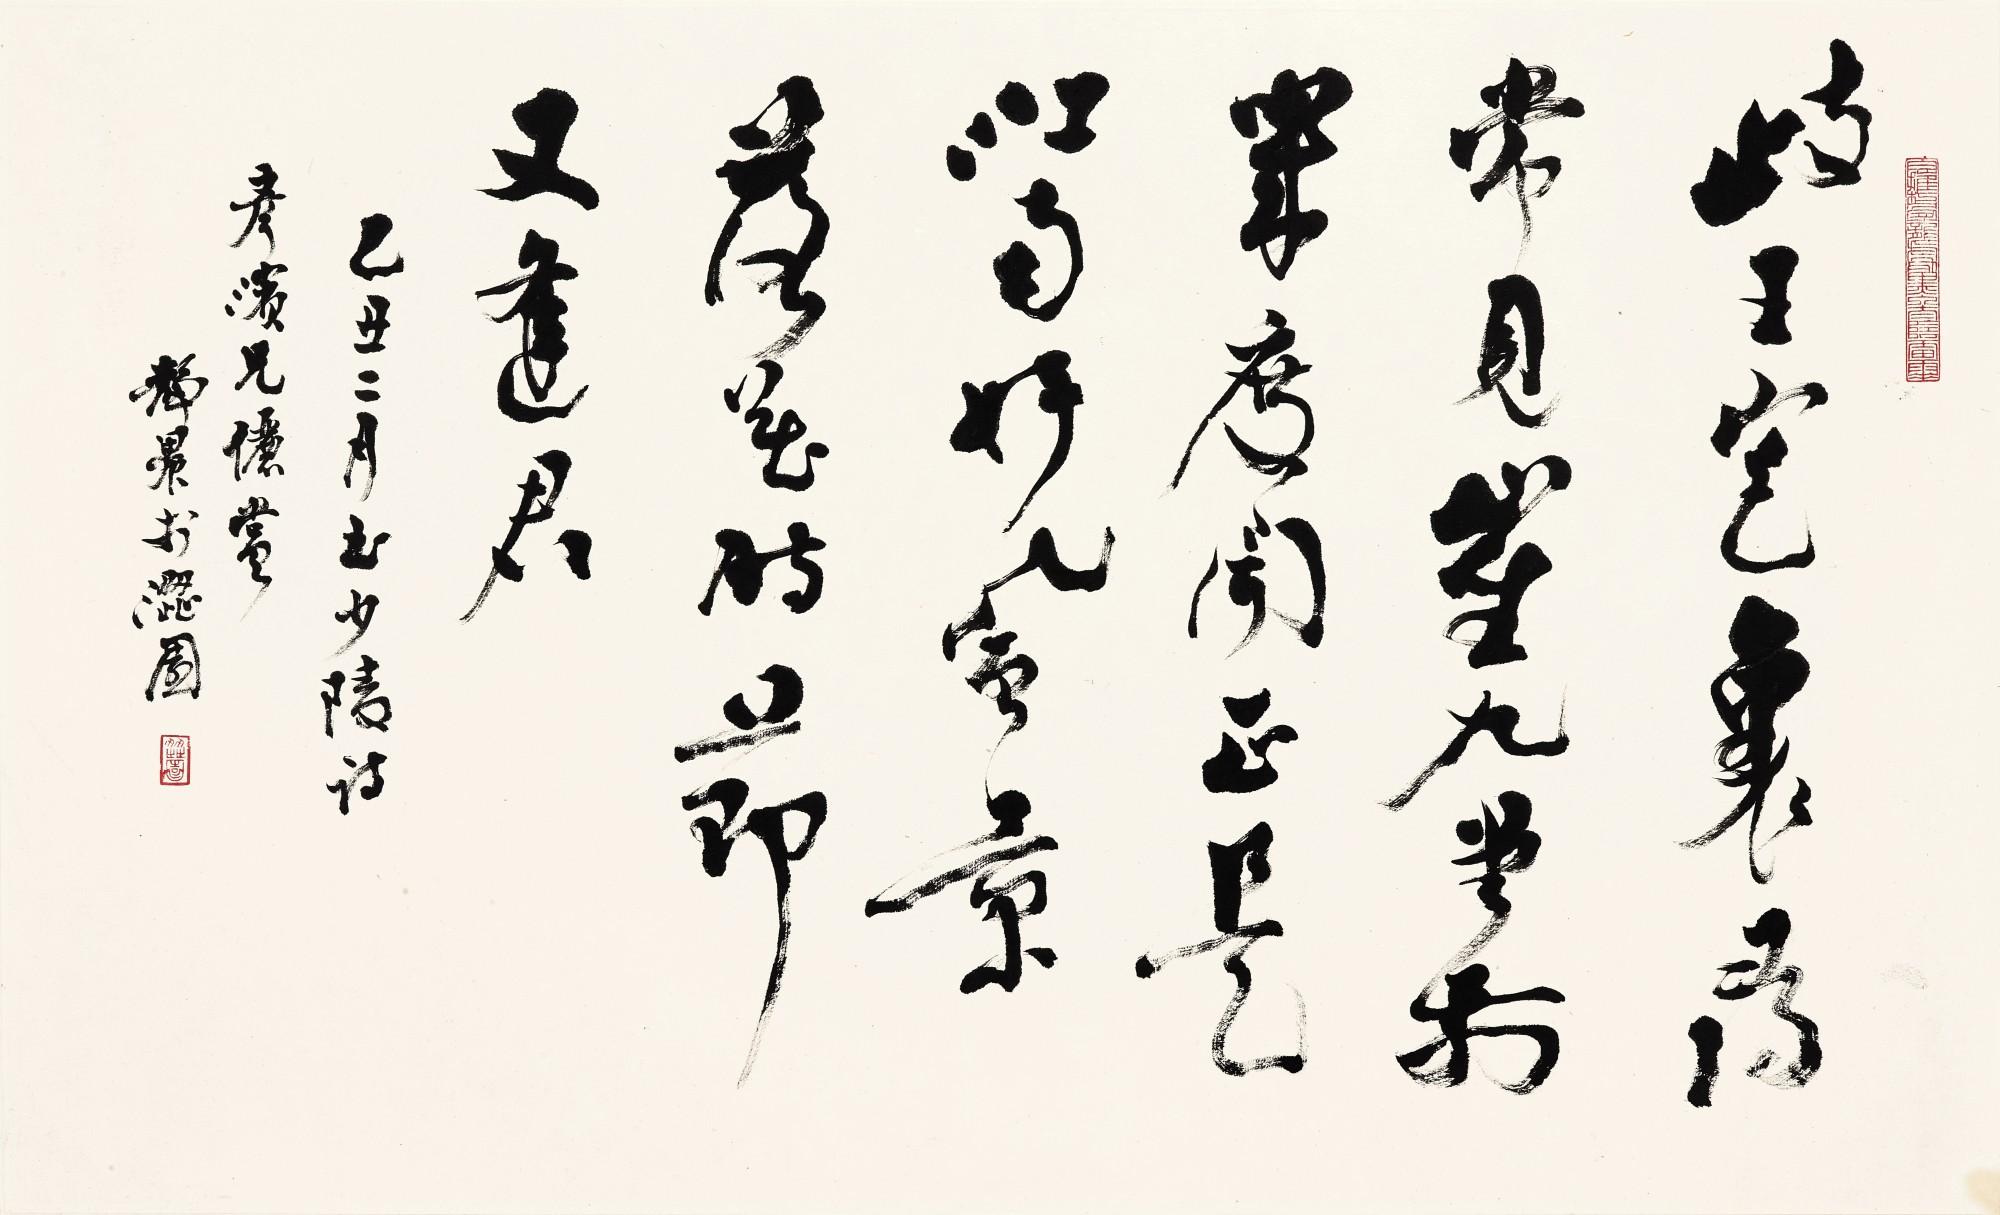 岐王宅裏尋
常見崔九堂前
幾度聞正是
江南好風景
落花時節
又逢君
乙丑二月書少陵詩
彥濱兄儷賞
靜於澀園